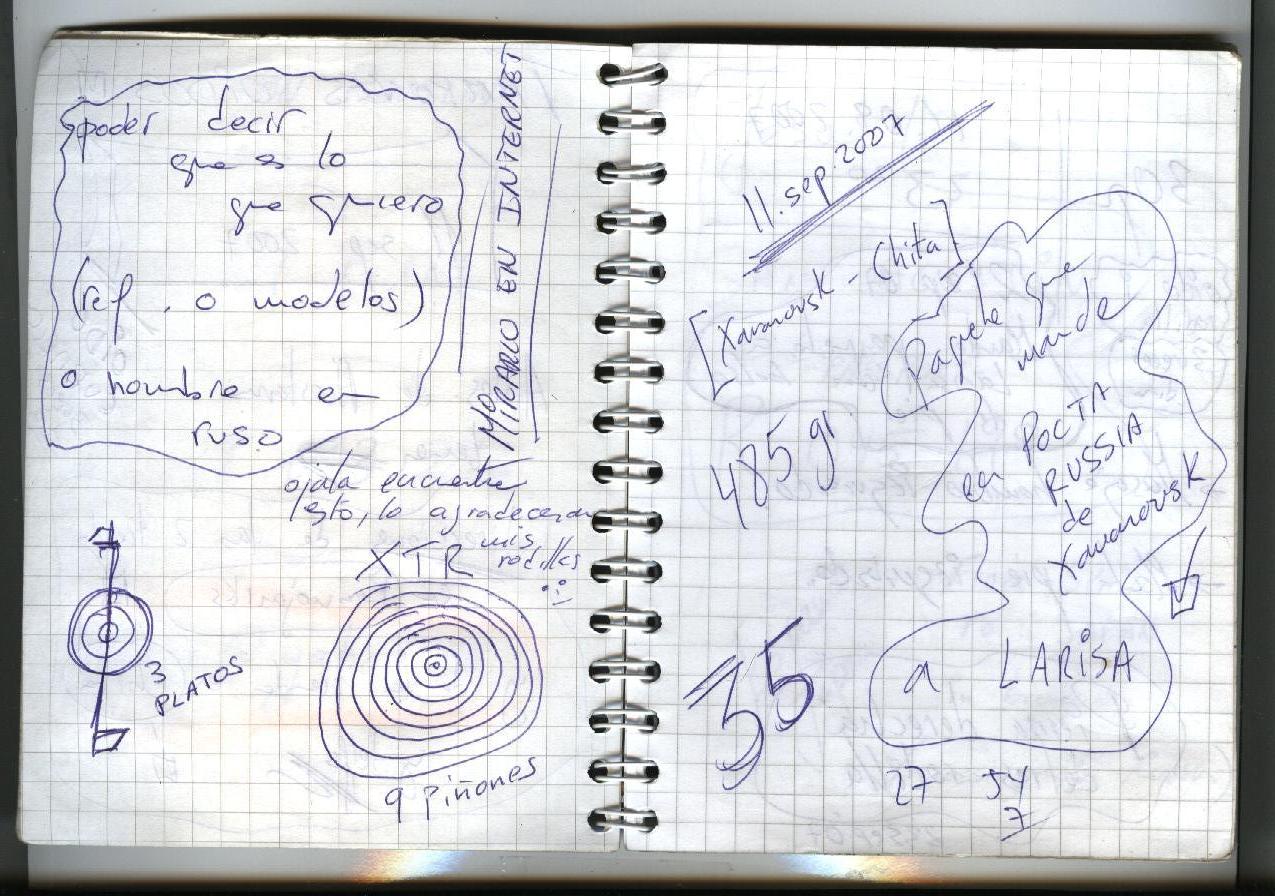 poder decir
que es lo
que quiero
(ref. o modelos)
o nombre en
ruso
MIRARLO EN INTERNET
ojala encuentre
esto, lo agradeceran
mis
rodillas
XTR
3
PLATOS
9 piñones
11.sep.2007
[Xavarovsk - Chita]
Paquete que
mande
en POCTA
RUSSIA
de
Xavarovsk
a LARISA
485 gr.
35
27 54
7